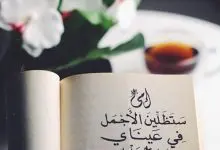 أمي
ستظلين الأجمل
في عيناي